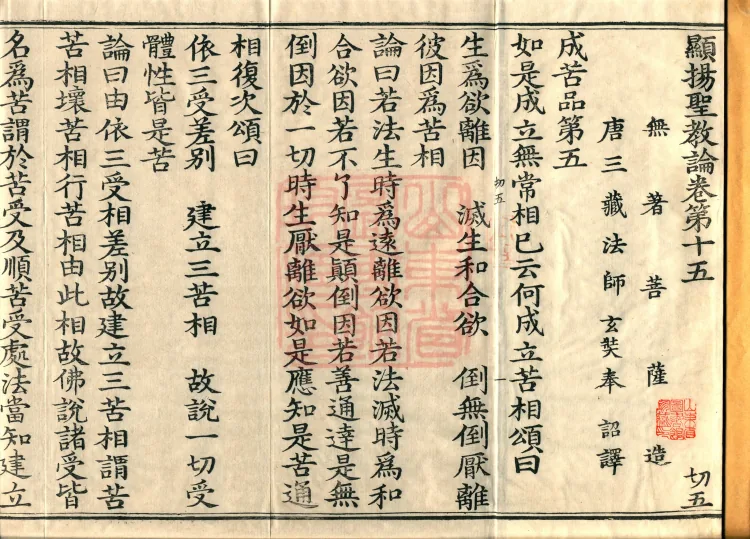 顯揚聖教論卷第十五
切五
無著菩薩造
唐三藏法師玄奘奉 詔譯
成苦品第五
如是成立無常相已云何成立苦相頌曰
切五
生爲欲離因 滅生和合欲 倒無倒厭離
彼因爲苦相
論曰若法生時爲遠離欲因若法滅時爲和
合欲因若不了知是顛倒因若善通達是無
倒因於一切時生厭離欲如是應知是苦通
相復次頌曰
依三受差別 建立三苦相 故說一切受
體性皆是苦
論曰由依三受相差別故建立三苦相謂苦
苦相壞苦相行苦相由此相故佛說諸受皆
名爲苦謂於苦受及順苦受處法當知建立